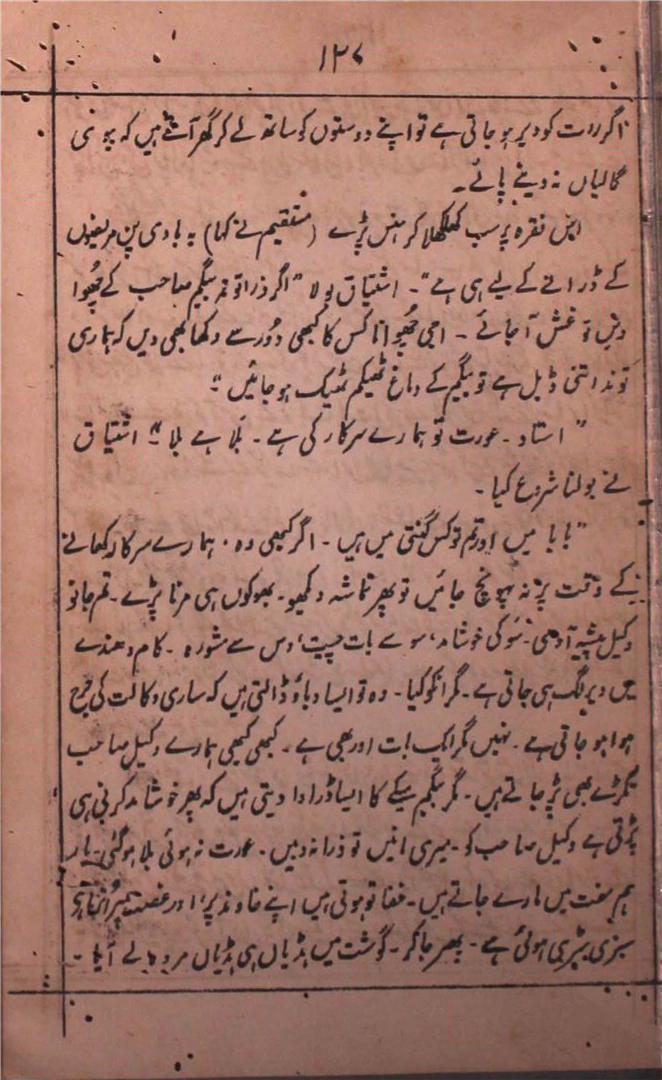 ۱۲۷
اگر رت کو دیر ہو جاتی ہے تو اپنے دوستوں کو ساتھ لے کر گھر آتے ہیں کہ بیوی
گالیاں نہ دینے پائے۔
اس فقرہ پر سب کھلکھلا کر ہنس پڑے (مستقیم نے کہا) یہ ہادی پن مریضوں
کے ڈرانے کے لیے ہی ہے"۔ اشتیاق بولا "اگر ذرا تو ند بیگم صاحب کے چھوا
دیں تو غش آ جائے۔ اجی چھوانا کس کا کبھی دور سے دکھا بھی دیں کہ ہماری
توند اتنی ڈبل ہے تو بیگم کے داغ ٹھیکم ٹھیک ہو جائیں"
"استاد۔ عورت تو ہمارے سرکار کی ہے۔ بَلا ہے بلا" اشتیاق
نے بولنا شروع کیا۔
"بابا میں اور تم تو کس گنتی میں ہیں۔ اگر کبھی وہ، ہمارے سرکار کھانے
کے وقت پر نہ پہونچ جائیں تو پھر تماشہ دیکھیو۔ بھوکوں ہی مرنا پڑے۔ تم جانو
وکیل پیشہ آدمی۔ سَو کی خوشامد، سو سے بات چیت، دس سے مشورہ۔ کام دھندے
میں دیر لگ ہی جاتی ہے۔ مگر انکو کیا۔ وہ تو ایسا دباؤ ڈالتی ہیں کہ ساری وکالت کی جرح
ہوا ہو جاتی ہے۔ نہیں مگر ایک بات اور بھی ہے۔ کبھی کبھی ہمارے وکیل صاحب
بگڑے بھی پڑ جاتے ہیں۔ مگر بیگم میکے کا ایسا ڈراوا دیتی ہیں کہ پھر خوشامد کرنی ہی
پڑتی ہے وکیل صاحب کو۔ میری مانیں تو ذرا نہ دبیں۔ عورت نہ ہوئی بلا ہو گئی۔ یار
ہم مفت میں مارے جاتے ہیں۔ خفا تو ہوتی ہیں اپنے خاوند پر، اور غصہ
سبزی سڑی ہوئی ہے۔ پھر جا کر۔ گوشت میں ہڈیاں ہی ہڈیاں لے آیا۔